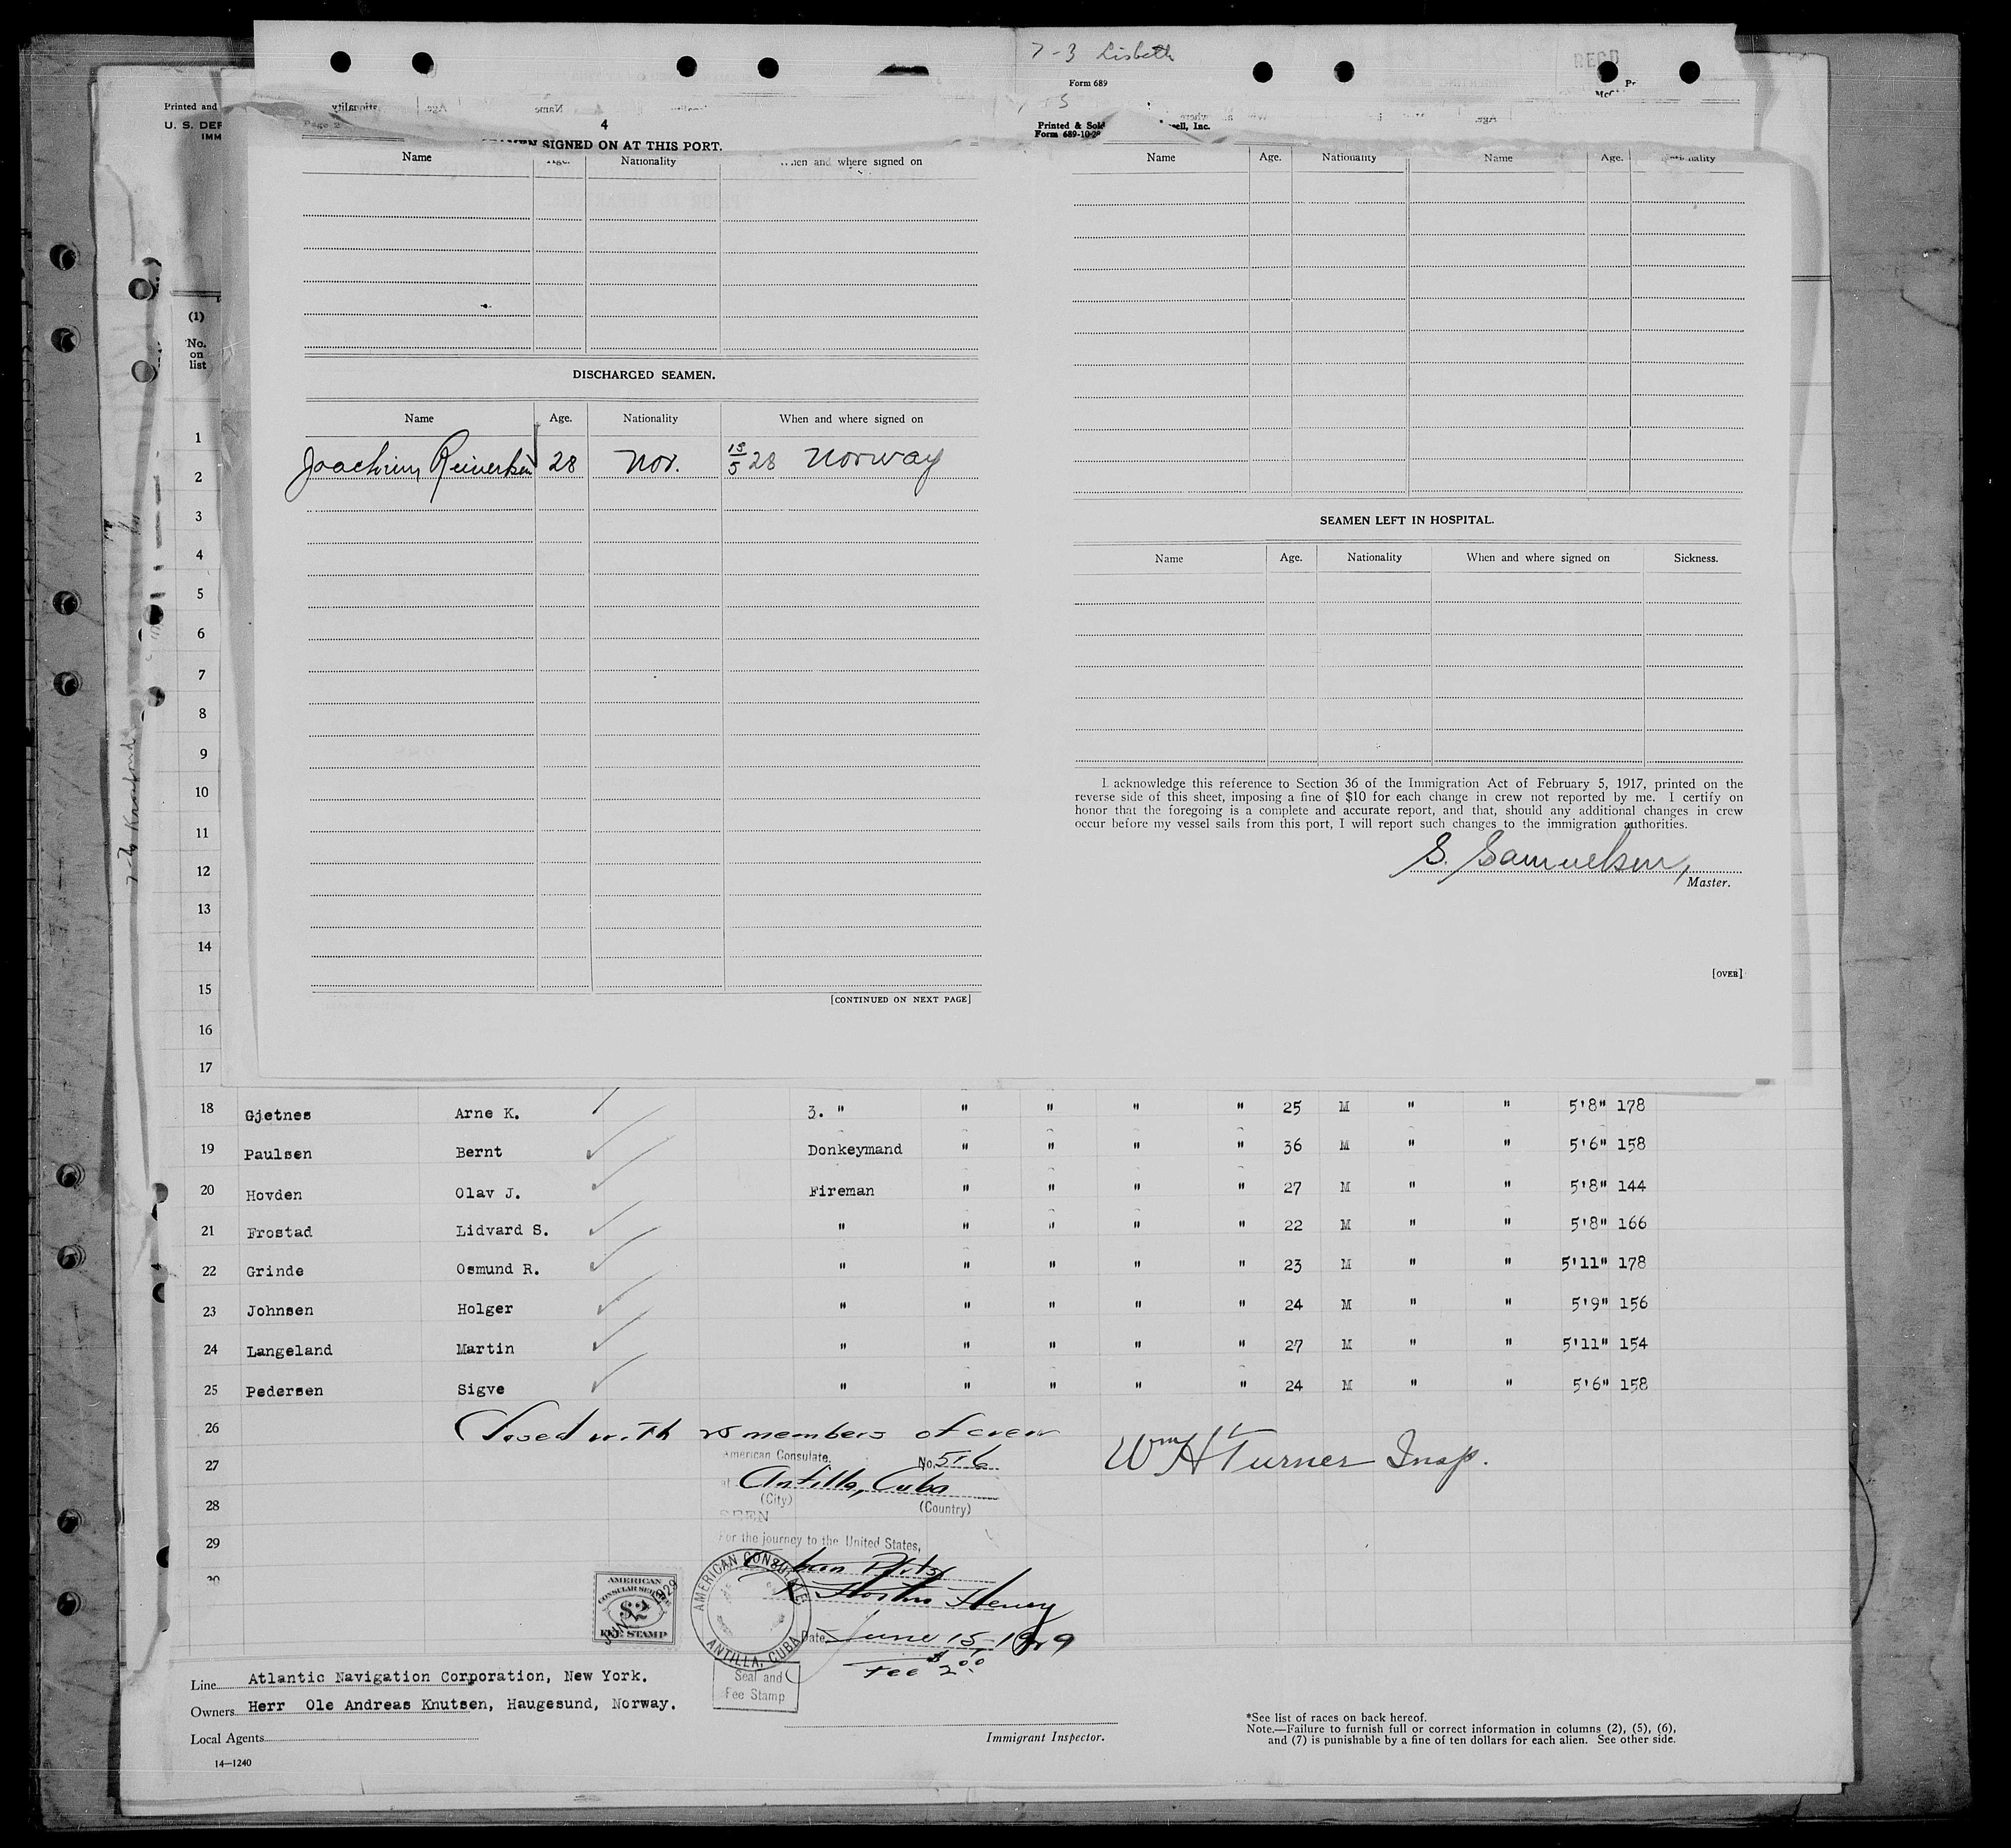 7-3 Lisbeth
RECD
Form 689
Printed and
U. S. DEP
IMM
Page 2
4
SEAMEN SIGNED ON AT THIS PORT.
Printed & Sold
Form 689-10-2
Name Age. Nationality When and where signed on
Name Age. Nationality Name Age. Nationality
(1)
No.
on
list
DISCHARGED SEAMEN.
Name Age. Nationality When and where signed on
Joachim Reinertsen 28 Nor. 15/5 28 Norway
[CONTINUED ON NEXT PAGE]
SEAMEN LEFT IN HOSPITAL.
Name Age. Nationality When and where signed on Sickness.
I acknowledge this reference to Section 36 of the Immigration Act of February 5, 1917, printed on the
reverse side of this sheet, imposing a fine of $10 for each change in crew not reported by me. I certify on
honor that the foregoing is a complete and accurate report, and that, should any additional changes in crew
occur before my vessel sails from this port, I will report such changes to the immigration authorities.
S. Samuelsen,
Master.
[OVER]
1
2
3
4
5
6
7
8
9
10
11
12
13
14
15
16
17
18 Gjetnes Arne K. 3. " " " " " 25 M " " 5'8" 178
19 Paulsen Bernt Donkeymand " " " " 36 M " " 5'6" 158
20 Hovden Olav J. Fireman " " " " 27 M " " 5'8" 144
21 Frostad Lidvard S. " " " " " 22 M " " 5'8" 166
22 Grinde Osmund R. " " " " " 23 M " " 5'11" 178
23 Johnsen Holger " " " " " 24 M " " 5'9" 156
24 Langeland Martin " " " " " 27 M " " 5'11" 154
25 Pedersen Sigve " " " " " 24 M " " 5'6" 158
26 Closed with 25 members of crew
27 American Consulate, No. 516
Wm H Turner Insp.
at Antilla, Cuba
28 (City) (Country)
SEEN
29 For the journey to the United States,
30
AMERICAN CONSULATE
ANTILLA, CUBA
AMERICAN
CONSULAR SERVICE
$2
FEE STAMP
Date June 15-1929
Fee $2.00
Seal and
Fee Stamp
Line Atlantic Navigation Corporation, New York.
Owners Herr Ole Andreas Knutsen, Haugesund, Norway.
Local Agents
Immigrant Inspector.
*See list of races on back hereof.
Note.—Failure to furnish full or correct information in columns (2), (5), (6),
and (7) is punishable by a fine of ten dollars for each alien. See other side.
14—1240